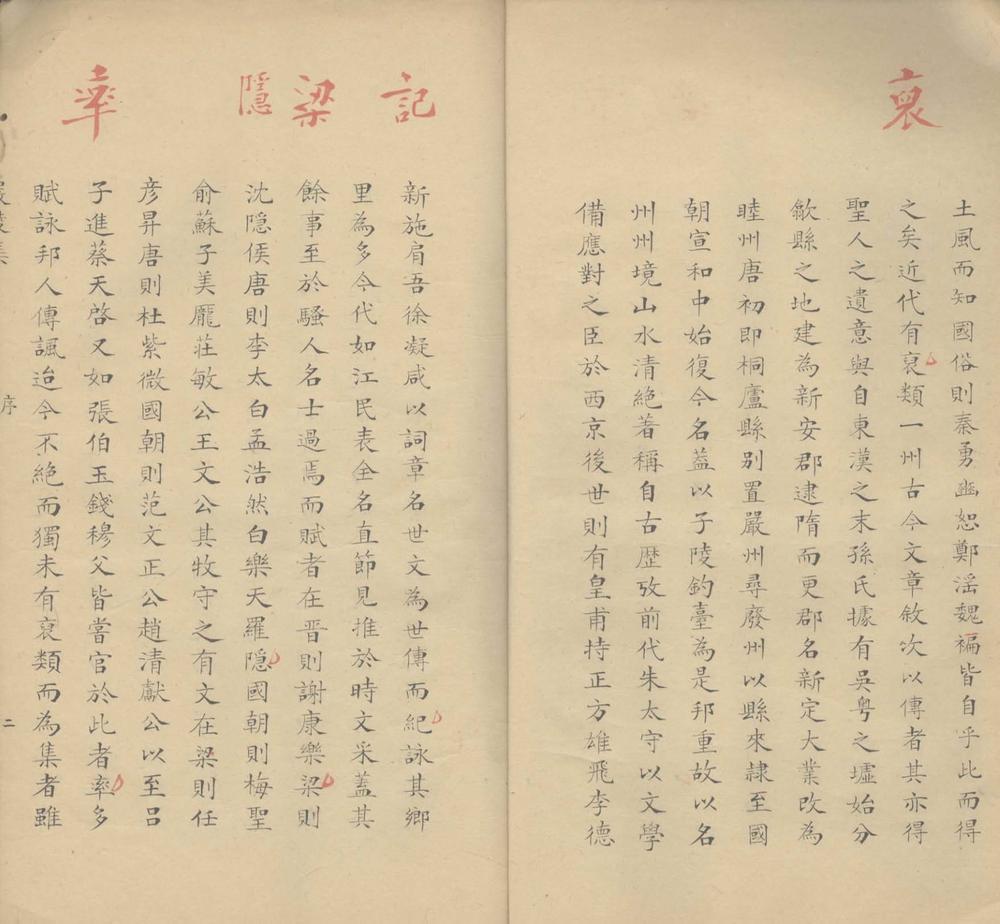 裒
土風而知國俗則秦勇豳恕鄭滛魏褊皆自乎此而得
之矣近代有裒類一州古今文章敘次以傳者其亦得
聖人之遺意與自東漢之末孫氏據有吳粤之墟始分
歙縣之地建為新安郡逮隋而更郡名新定大業改為
睦州唐初即桐廬縣别置嚴州尋廢州以縣來隷至國
朝宣和中始復今名蓋以子陵釣臺為是邦重故以名
州州境山水清絶著稱自古歴攷前代朱太守以文學
備應對之臣於西京後世則有皇甫持正方雄飛李德
記
梁
隱
率
新施肩吾徐凝咸以詞章名世文為世傳而紀詠其鄉
里為多今代如江民表全名直節見推於時文采蓋其
餘事至於騷人名士過焉而賦者在晉則謝康樂梁則
沈隠侯唐則李太白孟浩然白樂天羅隠國朝則梅聖
俞蘇子美龎莊敏公王文公其牧守之有文在梁則任
彦昇唐則杜紫微國朝則范文正公趙清獻公以至呂
子進蔡天啓又如張伯玉錢穆父皆嘗官於此者率多
賦詠邦人傳諷迨今不絶而獨未有裒類而為集者雖
序
二